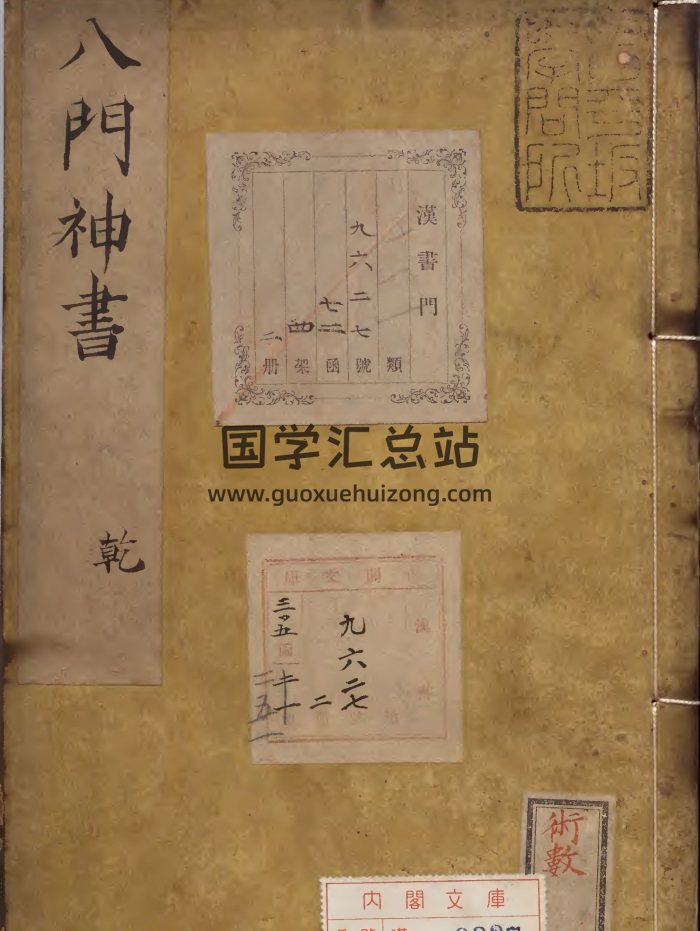 八門神書
乾
漢書門
類
九六二七號
七二函
四架
二册
国学汇总站
www.guoxuehuizong.com
九六二七
二
三五
術數
内閣文庫